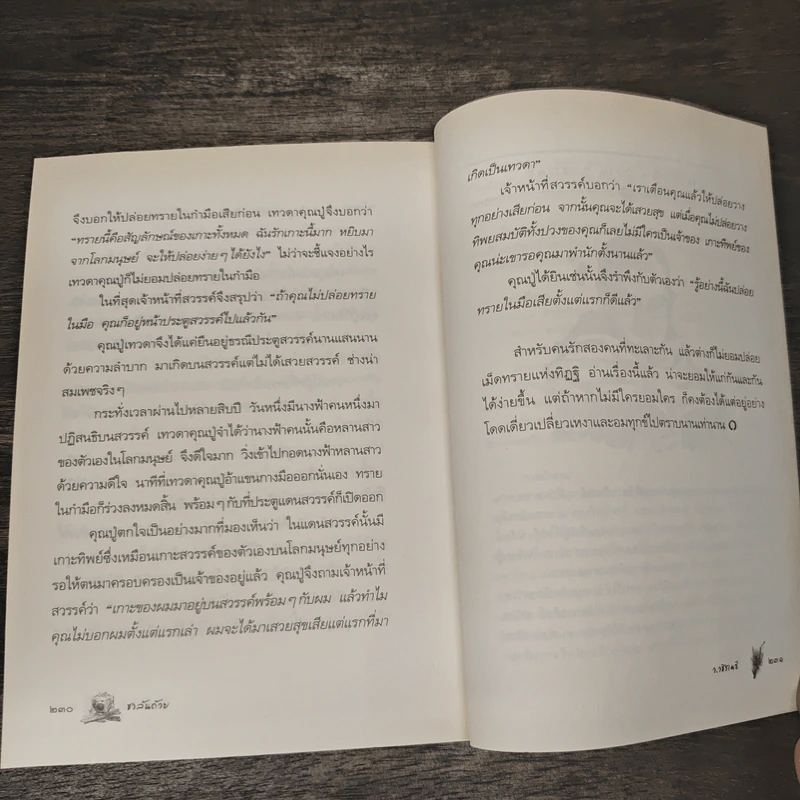 จึงบอกให้ปล่อยทรายในกำมือเสียก่อน เทวดาคุณปู่จึงบอกว่า
“ทรายนี้คือสัญลักษณ์ของเกาะทั้งหมด ฉันรักเกาะนี้มาก หยิบมา
จากโลกมนุษย์ จะให้ปล่อยง่ายๆ ได้ยังไง” ไม่ว่าจะชี้แจงอย่างไร
เทวดาคุณปู่ก็ไม่ยอมปล่อยทรายในกำมือ
ในที่สุดเจ้าหน้าที่สวรรค์จึงสรุปว่า “ถ้าคุณไม่ปล่อยทราย
ในมือ คุณก็อยู่หน้าประตูสวรรค์ไปแล้วกัน”
คุณปู่เทวดาจึงได้แค่ยืนอยู่ธรณีประตูสวรรค์นานแสนนาน
ด้วยความลำบาก มาเกิดบนสวรรค์แต่ไม่ได้เสวยสวรรค์ ช่างน่า
สมเพชจริงๆ
กระทั่งเวลาผ่านไปหลายสิบปี วันหนึ่งมีนางฟ้าคนหนึ่งมา
ปฏิสนธิบนสวรรค์ เทวดาคุณปู่จำได้ว่านางฟ้าคนนั้นคือหลานสาว
ของตัวเองในโลกมนุษย์ จึงดีใจมาก วิ่งเข้าไปกอดนางฟ้าหลานสาว
ด้วยความดีใจ นาทีที่เทวดาคุณปู่อ้าแขนกางมือออกนั่นเอง ทราย
ในกำมือก็ร่วงลงหมดสิ้น พร้อมๆ กับที่ประตูแดนสวรรค์ก็เปิดออก
คุณปู่ตกใจเป็นอย่างมากที่มองเห็นว่า ในแดนสวรรค์นั้นมี
เกาะทิพย์ซึ่งเหมือนเกาะสวรรค์ของตัวเองบนโลกมนุษย์ทุกอย่าง
รอให้ตนมาครอบครองเป็นเจ้าของอยู่แล้ว คุณปู่จึงถามเจ้าหน้าที่
สวรรค์ว่า “เกาะของผมมาอยู่บนสวรรค์พร้อมๆ กับผม แล้วทำไม
คุณไม่บอกผมตั้งแต่แรกเล่า ผมจะได้มาเสวยสุขเสียแต่แรกที่มา
๒๓๐
เกิดเป็นเทวดา”
เจ้าหน้าที่สวรรค์บอกว่า “เราเตือนคุณแล้วให้ปล่อยวาง
ทุกอย่างเสียก่อน จากนั้นคุณจะได้เสวยสุข แต่เมื่อคุณไม่ปล่อยวาง
ทิพยสมบัติทั้งปวงของคุณก็เลยไม่มีใครเป็นเจ้าของ เกาะทิพย์ของ
คุณน่ะเขารอคุณมาพำนักตั้งนานแล้ว”
คุณปู่ได้ยินเช่นนั้นจึงรำพึงกับตัวเองว่า “รู้อย่างนี้ฉันปล่อย
ทรายในมือเสียตั้งแต่แรกก็ดีแล้ว”
สำหรับคนรักสองคนที่ทะเลาะกัน แล้วต่างก็ไม่ยอมปล่อย
เม็ดทรายแห่งทิฏฐิ อ่านเรื่องนี้แล้ว น่าจะยอมให้แก่กันและกัน
ได้ง่ายขึ้น แต่ถ้าหากไม่มีใครยอมใคร ก็คงต้องได้แต่อยู่อย่าง
โดดเดี่ยวเปลี่ยวเหงาและอมทุกข์ไปตราบนานเท่านาน
ว.วชิรเมธี
๒๓๑